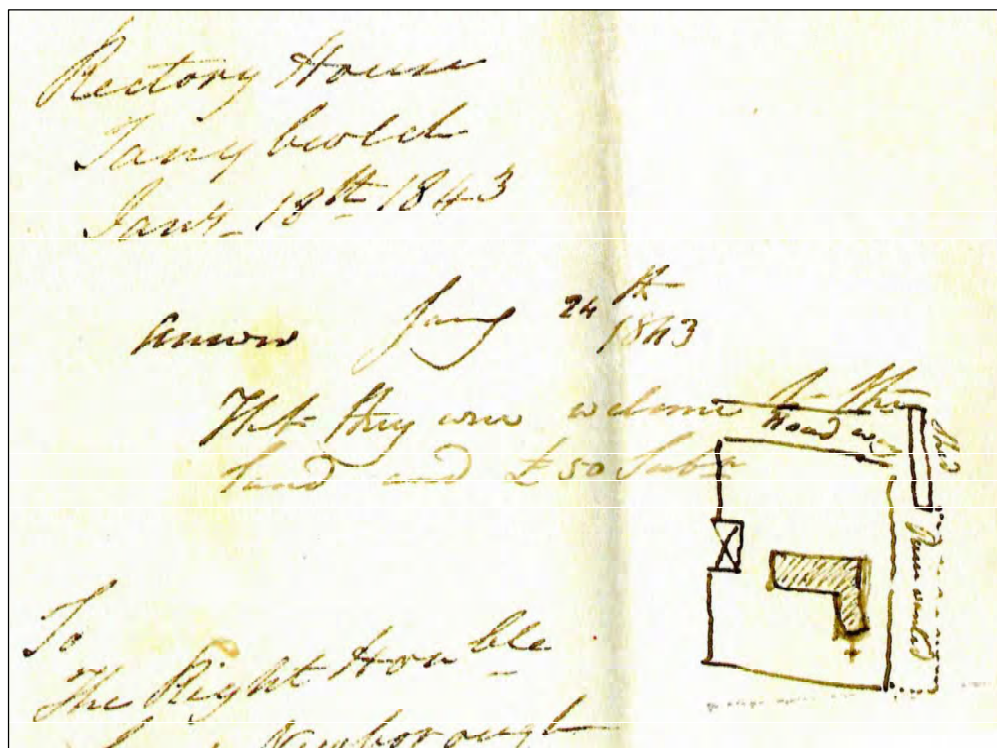 Rectory House
Tanybwlch
Jany. 18th 1843
Answer Jany 24th 1843
That they were welcome to the
land and £50 Subn
Road way
Shed
Now wanted
To
The Right Honble
Lord Newborough